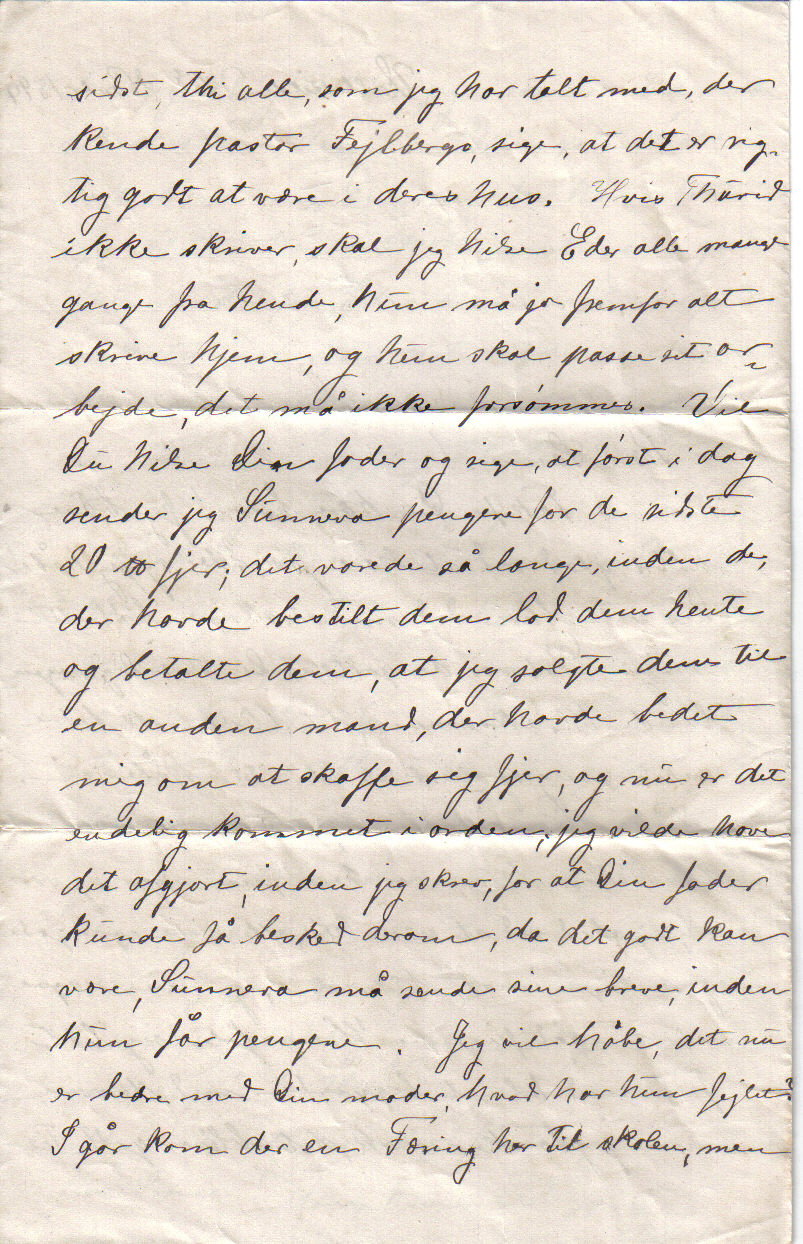 sidst, thi alle, som jeg har talt med, der
kende pastor Fejlbergs, sige, at det er rig-
tig godt at være i deres hus. Hvis Thurid
ikke skriver, skal jeg hilse Eder alle mange
gange fra hende, hun må jo fremfor alt
skrive hjem, og hun skal passe sit ar-
bejde, det må ikke forsømmes. Vil
Du hilse Din fader og sige, at først i dag
sender jeg Sunneva pengene for de sidste
20 fjer; det varede så længe, inden de,
der havde bestilt dem lod dem hente
og betalte dem, at jeg solgte dem til
en anden mand, der havde bedet
mig om at skaffe sig fjer, og nu er det
endelig kommet i orden; jeg vilde have
det afgjort, inden jeg skrev, for at Din fader
kunde få besked derom, da det godt kan
være, Sunneva må sende sine breve, inden
hun får pengene. Jeg vil håbe, det nu
er bedre med Din moder, hvad har hun fejlet?
I går kom der en Færing her til skolen, men